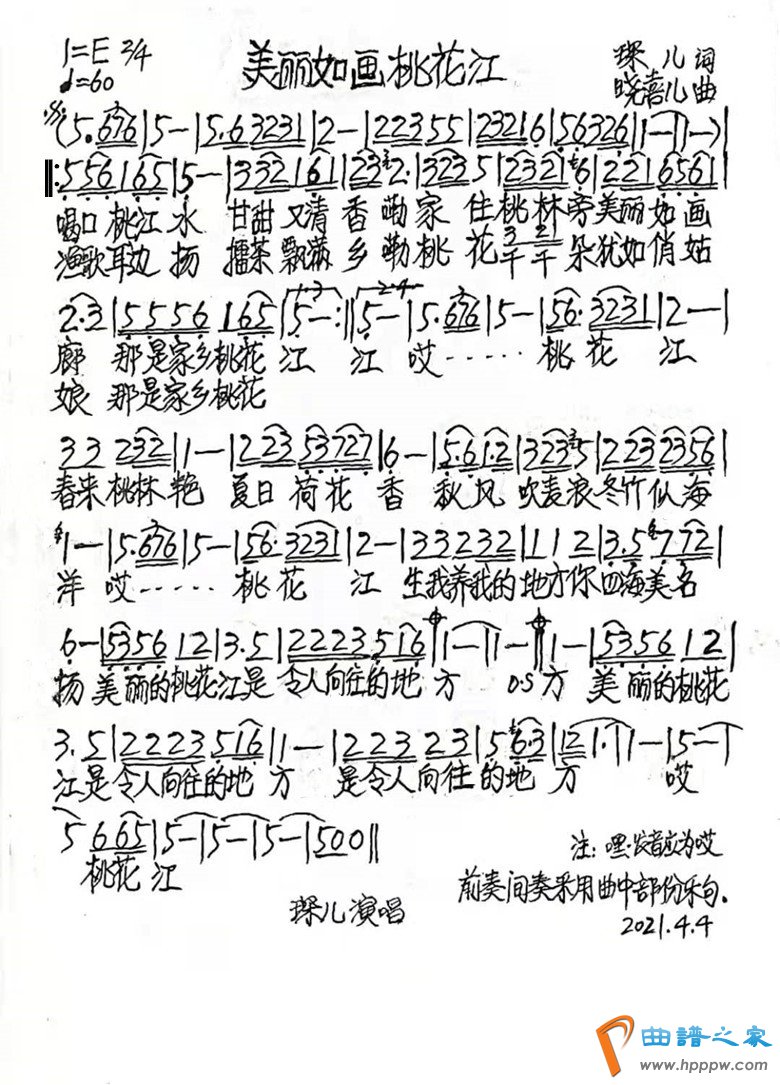 1=E 2/4
♩=60
美丽如画桃花江
琛儿词
晓喜儿曲
(5.676|5—|5.63231|2—|22355|23216|56326|1—|1—)|
‖:556165|5—|332161|232.|3235|2321 6|2216561|
喝口桃江水 甘甜又清香嘞家 住桃林旁美丽如画
渔歌耳边扬 擂茶飘满乡嘞桃 花千千朵犹如俏姑
2.3|5556 165|5—:‖5—|5.676|5—|56.3231|2—|
廊 那是家乡桃花江 江 哎······桃花 江
娘 那是家乡桃花
33 232|1—|223 53727|6—|5.61.2|3235|2232356|
春来桃林艳 夏日荷花 香 秋风吹麦浪冬竹似海
1—|5.676|5—|56.3231|2—|33232|112|3.5772|
洋 哎·····桃花 江 生我养我的地方你四海美名
6—|5356 12|3.5|2223516|1—|1—‖1—|5356 12|
扬 美丽的桃花江是令人向往的地 方 DS方 美丽的桃花
3.5|2223516|1—|22323|56.3|21.|1—|5—|
江是令人向往的地 方 是令人向往的地 方 哎
5 665|5—|5—|5—|500‖
桃花 江
注:嘿·发音应为哎
琛儿演唱
前奏间奏采用曲中部份乐句.
2021.4.4
曲谱之家
www.hpppw.com